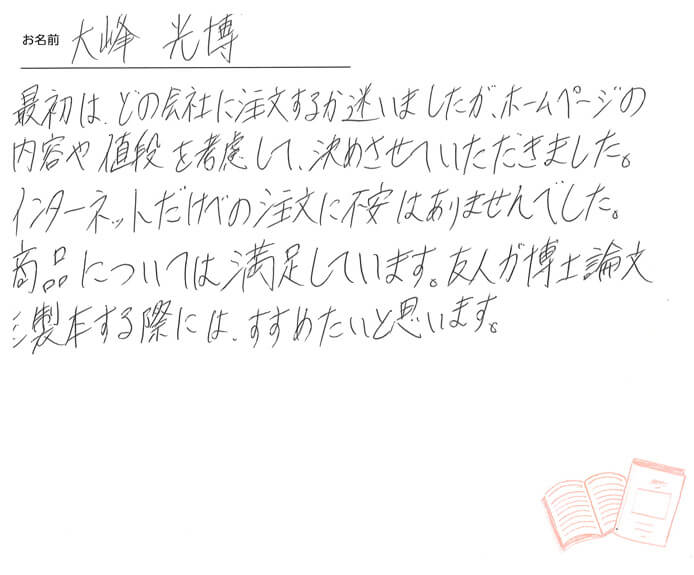 お名前 大峰 光博
最初は、どの会社に注文するか迷いましたが、ホームページの
内容や値段を考慮して、決めさせていただきました。
インターネットだけでの注文に不安はありませんでした。
商品については満足しています。友人が博士論文
を製本する際には、すすめたいと思います。